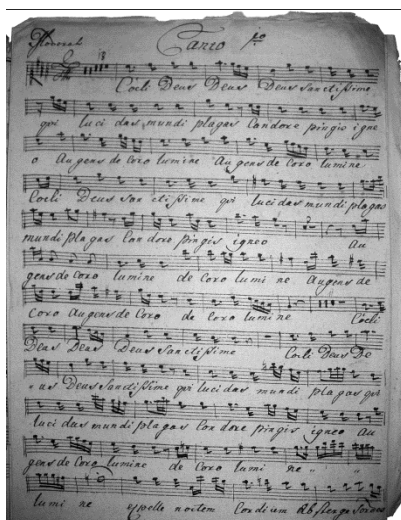 Canto 1º
18
Coeli Deus Deus Deus Sanctissime
qui luci das mundi plagas Candore pingis igne
o Augens de Coro lumine Augens de Coro lumine
Coeli Deus San ctissime qui luci das mundi plagas
mundi plagas Can dore pingis igneo Au
gens de Coro lumine de Coro lumi ne Augens de
Coro Augens de Coro de Coro lumine Coeli
Deus Deus Deus Sanctissime Coeli Deus De
us Deus Sanctissime qui luci das mundi plagas qui
luci das mundi plagas Can dore pingis igneo Au
gens de Coro lumine de Coro lumi ne
lumi ne noctem Cordium Absterge